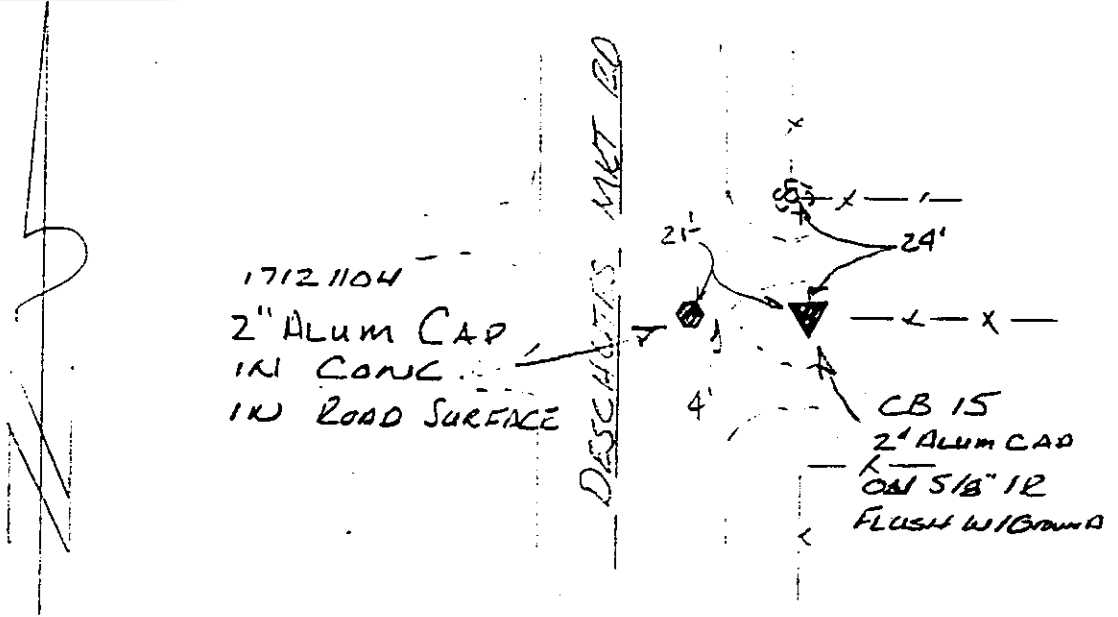 DESCHUTES MKT RD
21'
24'
17121104
2" ALUM CAP
IN CONC.
IN ROAD SURFACE
4'
CB 15
2" ALUM CAP
ON 5/8" IR
FLUSH W/GROUND
N